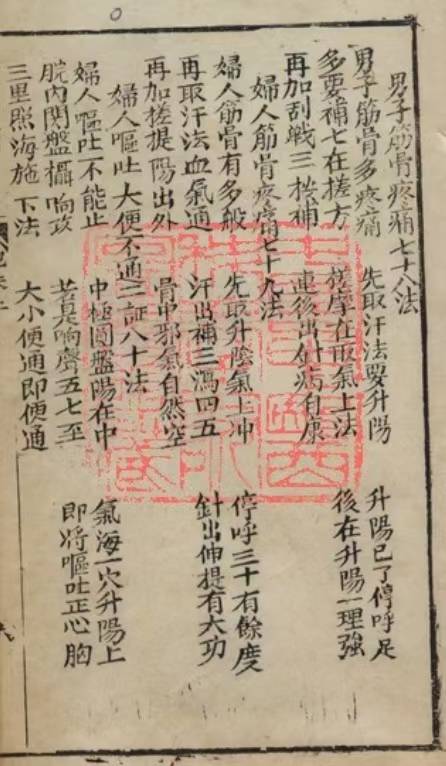 男子筋骨疼痛七十八法
男子筋骨多疼痛 先取汗法要升陽 升陽已了停呼足
多要補七在搓方 搓摩在取氣上法 後在升陽一理強
再加刮戰三搓補 連後出針病自康
婦人筋骨疼痛七十九法
婦人筋骨有多般 先取升陰氣上冲 停呼三十有餘度
再取汗法血氣通 汗出補三瀉四五 針出伸提有大功
再加搓提陽出外 骨中邪氣自然空
婦人嘔吐大便不通二証八十法
婦人嘔吐不能止 中極圓盤陽在中 氣海一穴升陽上
脘內関盤攝响攻 若具响聲五七至 即將嘔吐正心胸
三里照海施下法 大小便通即便通